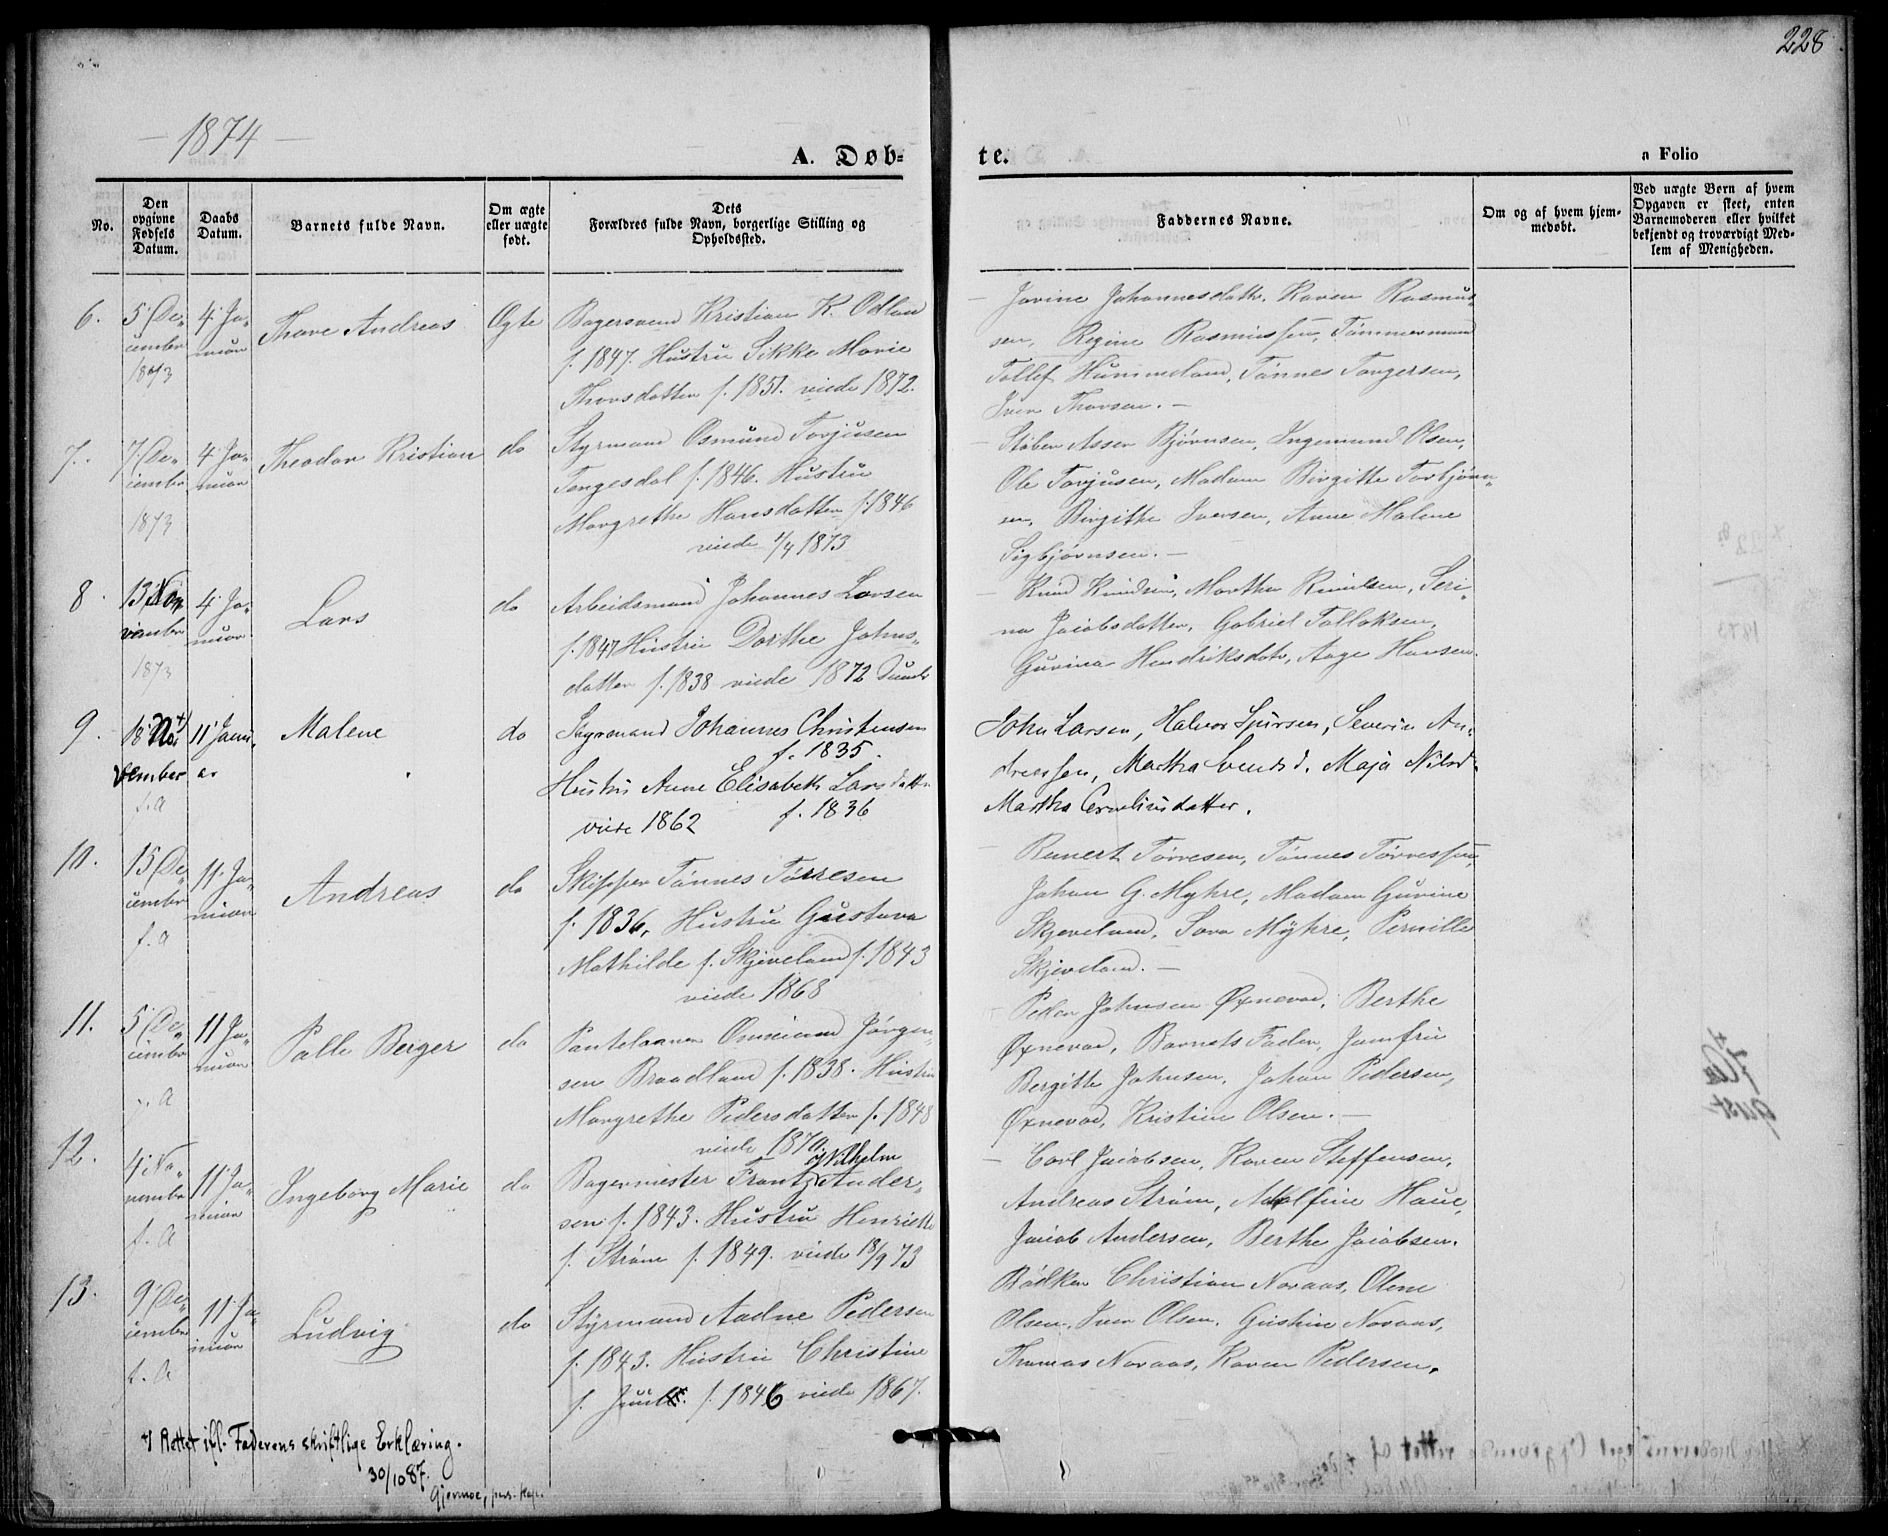 228
1874
A. Døb-
te.
a Folio
No.
Den opgivne Fødsels Datum.
Daabs Datum.
Barnets fulde Navn.
Om ægte eller uægte født.
Dets Forældres fulde Navn, borgerlige Stilling og Opholdssted.
Faddernes Navne.
Om og af hvem hjemmedøbt.
Ved uægte Børn af hvem Opgaven er skeet, enten Barnemoderen eller hvilket bekjendt og troværdigt Medlem af Menigheden.
6. 5 De- 4 Ja- Thore Andreas Ægte Bagersvend Kristian K. Odland
cember nuar f. 1847. Hustru Sikke Marie
1873 Thorsdatter f. 1851. viede 1872.
Jorine Johannesdattr. Karen Rasmus-
sen, Regine Rasmussen, Tømmermand
Tollef Hummeland, Tønnes Tongersen,
Iver Thorsen. —
7. 7 De- 4 Ja- Theodor Kristian do Styrmand Osmund Torjusen
cember nuar Tengesdal f. 1846. Hustru
1873 Margrethe Hansdatter f. 1846
viede 1/4 1873
Støber Asser Bjørnsen, Ingemund Olsen,
Ole Torjusen, Madam Birgitte Torbjørn-
sen, Birgithe Iversen, Anne Malene
Sigbjørnsen. —
8. 13 No- 4 Ja- Lars do Arbeidsmand Johannes Larsen
vember nuar f. 1847 Hustru Dorthe Johns-
1873 datter f. 1838 viede 1872 Sunde
Knud Knudsen, Martha Knudsen, Seri-
na Jacobsdatter, Gabriel Tollaksen,
Gurina Hendriksdatr, Aage Hansen.
9. 18 No- 11 Janu- Malene do Styrmand Johannes Christensen
vember ar f. 1835.
f. A Hustru Anne Elisabeth Larsdatter
viede 1862 f. 1836
John Larsen, Halvor Spursen, Severin An-
dreassen, Martha Svendsd. Maja Nilsd.
Martha Corneliusdatter.
10. 15 De- 11 Ja- Andreas do Skipper Tønnes Tørresen
cember nuar f. 1836, Hustru Gustava
f. A Mathilde f. Skjeveland f. 1843
viede 1868
Reinert Tørresen, Tønnes Tørressen,
Johan G. Myhre, Madam Gurine
Skjeveland, Sara Myhre, Pernille
Skjeveland. —
11. 5 De- 11 Ja- Palle Berger do Pantelaaner Ommund Jørgen-
cember nuar sen Braadland f. 1838. Hustru
f. A Margrethe Pedersdatter f. 1848
viede 1870
Peder Johnsen Øxnevad, Berthe
Øxnevad, Barnets Fader, Jomfru
Bergitte Johnsen, Johan Pedersen,
Øxnevad, Kristine Olsen. —
12. 4 No- 11 Ja- Ingeborg Marie do Bagermester Frantz Vilhelm Ander-
vember nuar sen f. 1843. Hustru Henriette
f. A f. Strøm f. 1849. viede 18/9 73
Carl Jacobsen, Karen Steffensen,
Andreas Strøm, Adolfine Haue,
Jacob Andersen, Berthe Jacobsen.
13. 9 De- 11 Ja- Ludvig do Styrmand Aadne Pedersen
cember nuar f. 1843. Hustru Christine
f. A f. Juul. f. 1846 viede 1867.
Bødker Christian Noraas, Olene
Olsen, Iver Olsen, Gustine Noraas,
Thomas Noraas, Karen Pedersen.
+) Rettet ifl. Faderens skriftlige Erklæring.
30/10 87.
Gjermoe, pers. Kap.